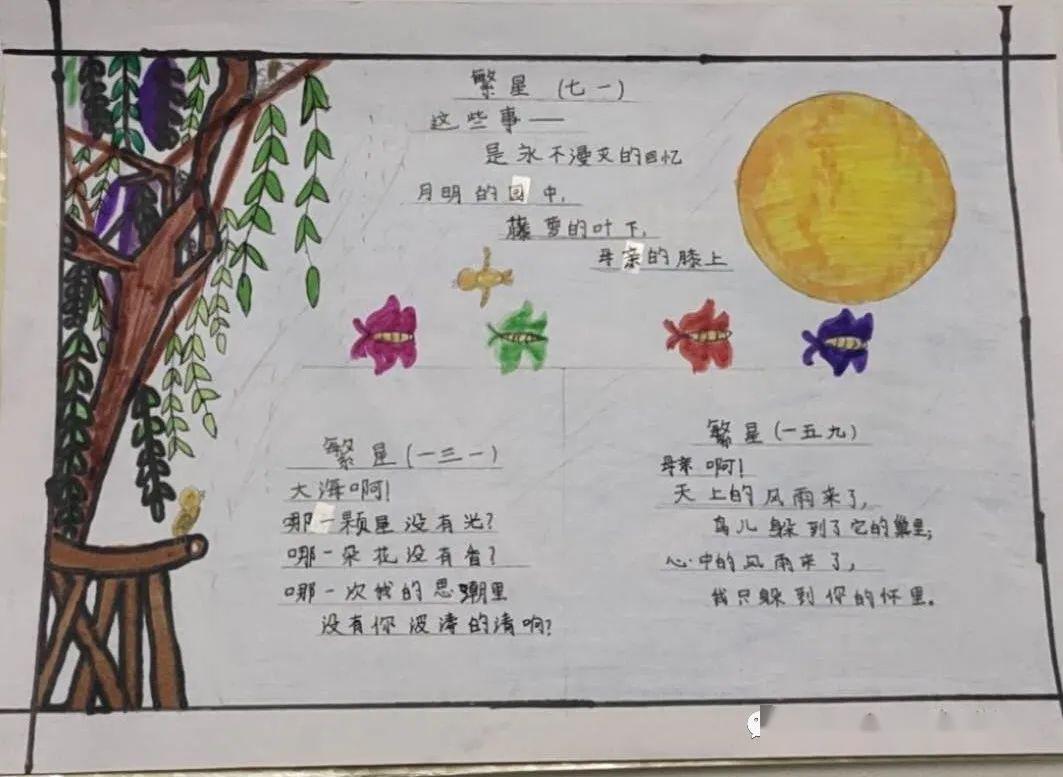 繁星 (七一)
这些事——
是永不漫灭的回忆
月明的园中,
藤萝的叶下,
母亲的膝上
繁星(一三一)
大海啊!
哪一颗星没有光?
哪一朵花没有香?
哪一次我的思潮里
没有你波涛的清响?
繁星(一五九)
母亲啊!
天上的风雨来了,
鸟儿躲到了它的巢里;
心中的风雨来了,
我只躲到你的怀里。